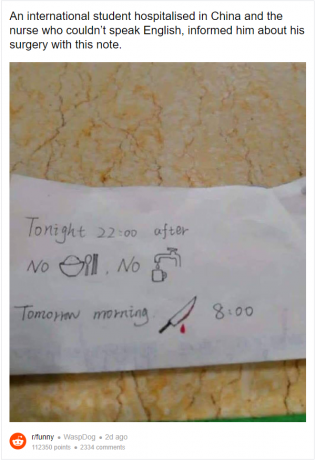 An international student hospitalised in China and the
nurse who couldn't speak English, informed him about his
surgery with this note.
Tonight 22:00 after
No , No
Tomorrow morning 8:00
r/funny • WaspDog • 2d ago
112350 points • 2334 comments